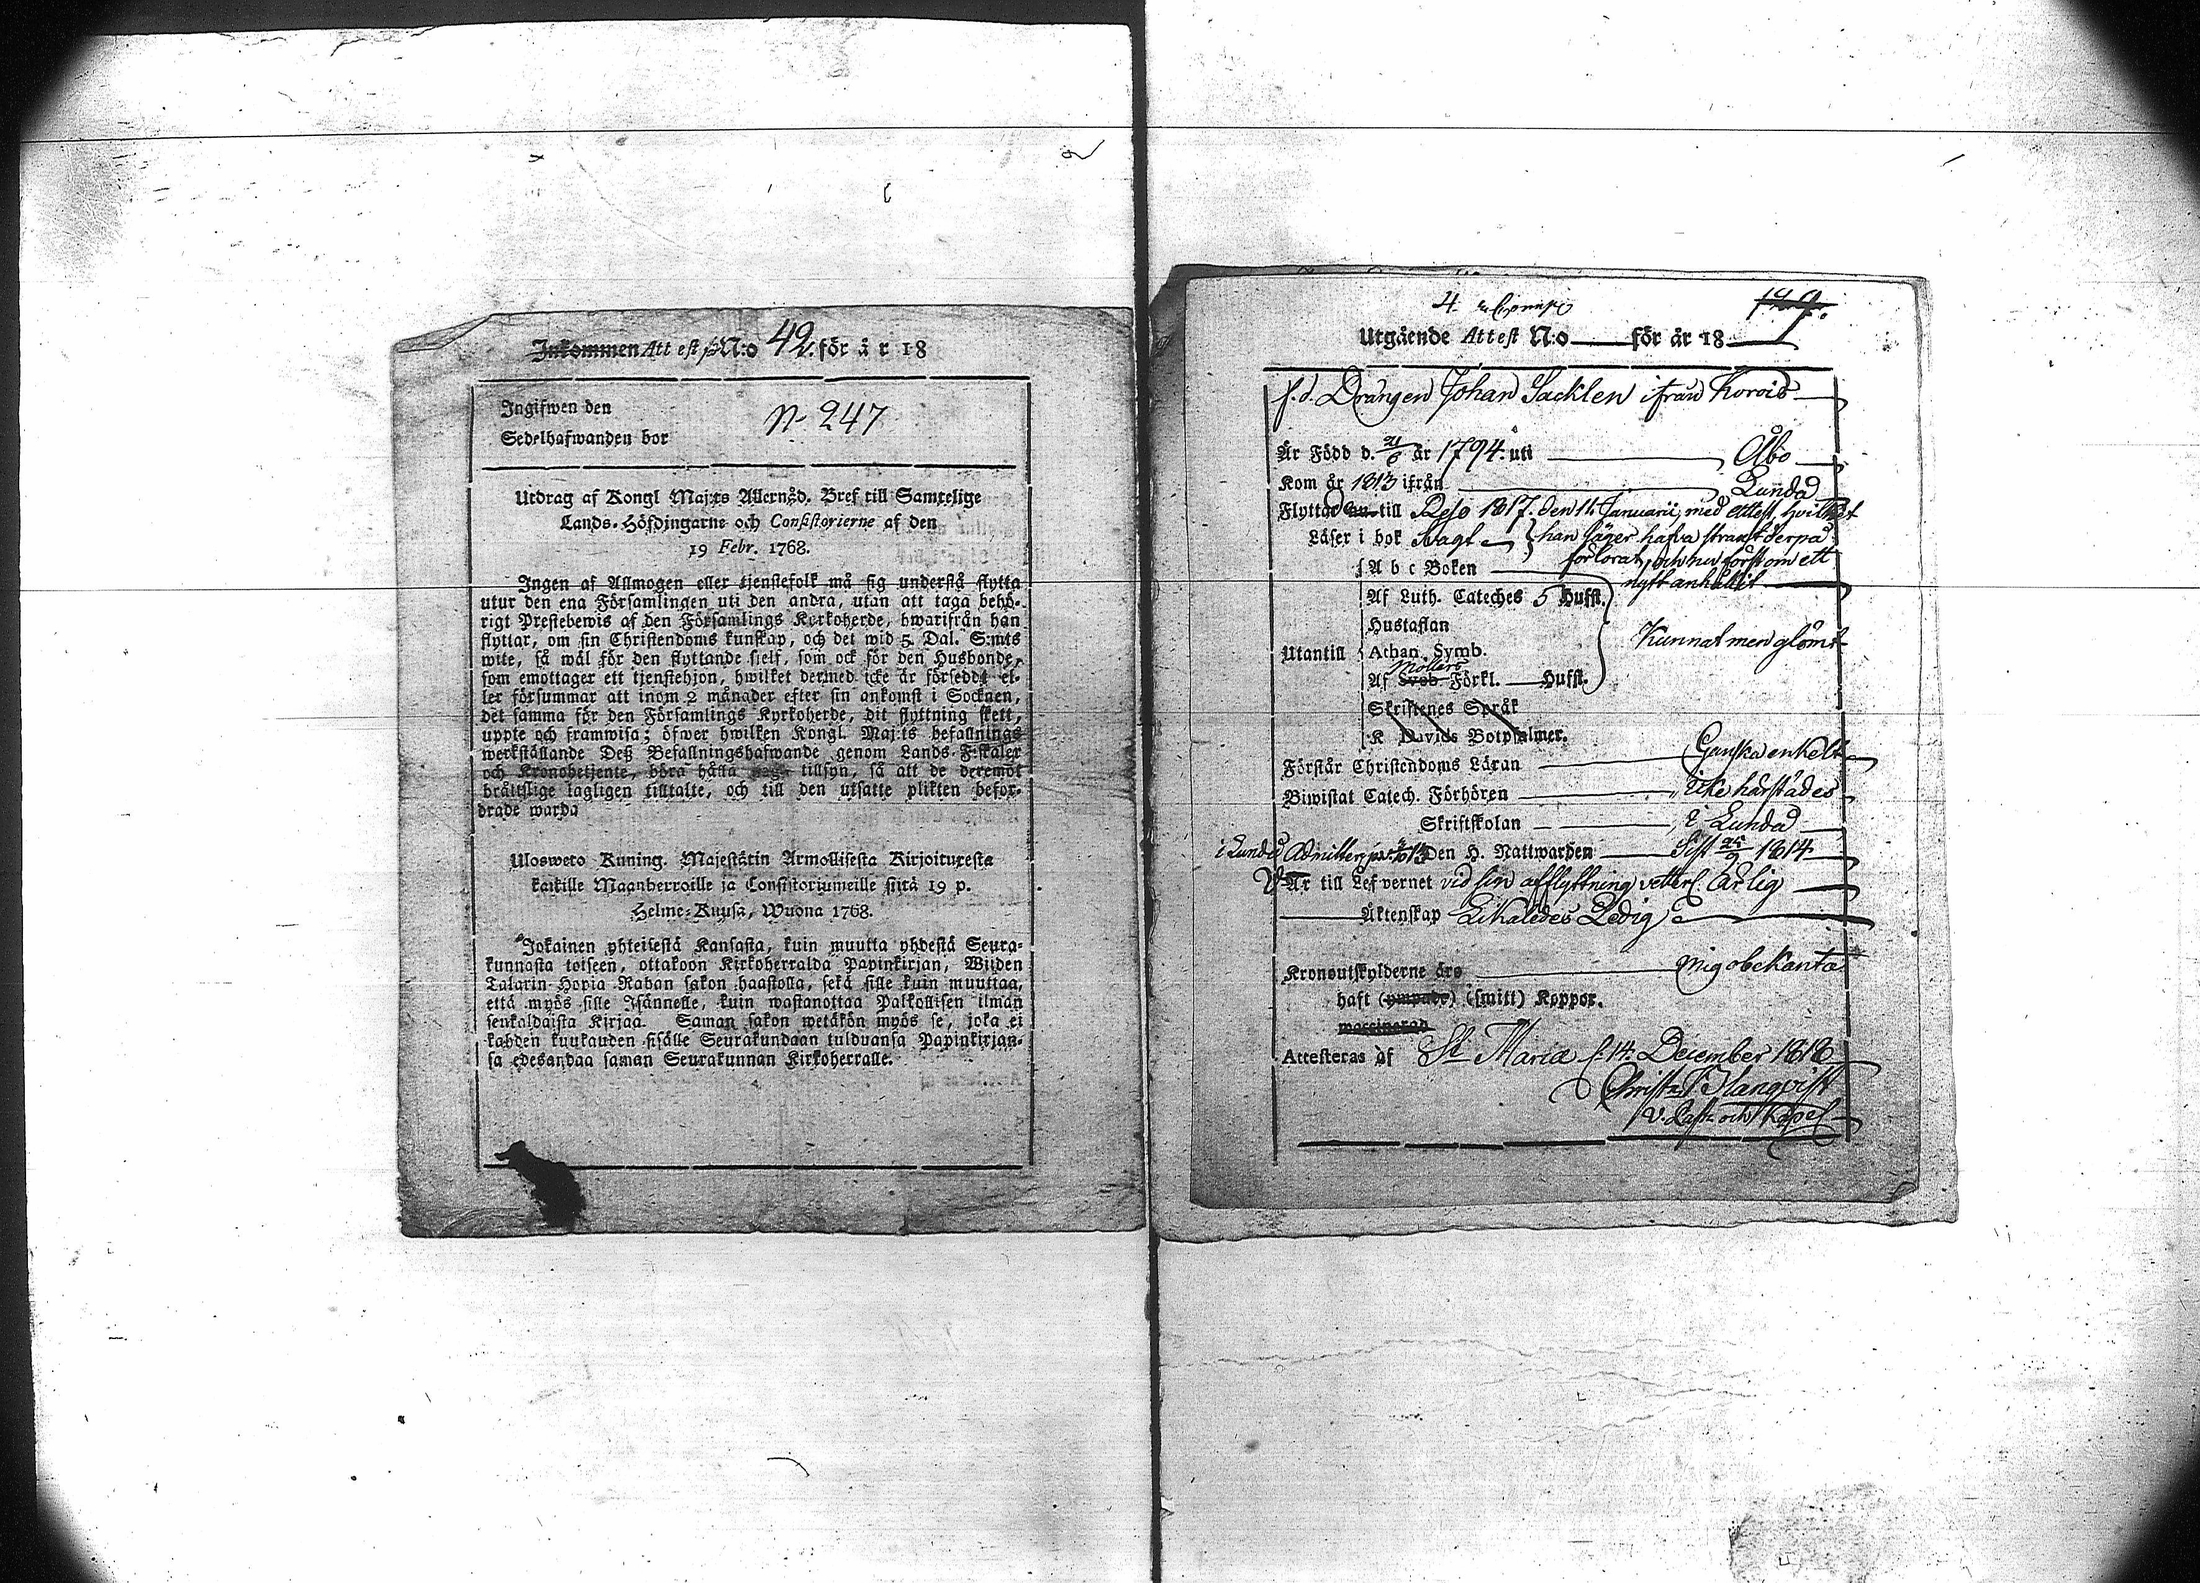 Inkommen Attest N:o 42. för år 18
Ingifwen den
N 247
Sedelhafwanden bor
Utdrag af Kongl Maj:ts Allernåd. Bref till Samtelige
Lands-Höfdingarne och Consistorierne af den
19 Febr. 1768.
Ingen af Allmogen eller tjenstefolk må sig understå flytta
utur den ena Församlingen uti den andra, utan att taga behö-
rigt Prestebewis af den Församlings Kyrkoherde, hwarifrån han
flyttar, om sin Christendoms kunskap, och det wid 5 Dal. S:mts
wite, så wäl för den flyttande sjelf, som ock för den Husbonde,
som emottager ett tjenstehjon, hwilket dermed icke är försedt el-
ler försummar att inom 2 månader efter sin ankomst i Socknen,
det samma för den Församlings Kyrkoherde, dit flyttning skett,
uppte och framwisa; öfwer hwilken Kongl. Maj:ts befallnings
werkställande Deß Befallningshafwande genom Lands-Fiskaler
och Kronobetjente, böra hålla noga tillsyn, så att de deremot
bråttslige lagligen tilltalte, och till den utsatte plikten befor-
drade warda
Ulosweto Kuning. Majestätin Armollisesta Kirjoituxesta
kaikille Maanherroille ja Consistoriumeille siitä 19 p.
Helme-Kuusa, Wuona 1768.
Jokainen yhteisestä Kansasta, kuin muutta yhdestä Seura-
kunnasta toiseen, ottakoon Kirkoherralda Papinkirjan, Wijden
Talarin Hopia Rahan sakon haastolla, sekä sille kuin muuttaa,
että myös sille Isännelle, kuin wastanottaa Palkollisen ilman
senkaldaista Kirjaa. Saman sakon wetäkön myös se, joka ei
kahden kuukauden sisälle Seurakundaan tulduansa Papinkirjan-
sa edesandaa saman Seurakunnan Kirkoherralle.
Utgående Attest N:o för år 18
f.d. Drängen Johan Sacklen ifrån Korois
Är Född d. 21/6 år 1794. uti Åbo
Kom år 1813 ifrån Lundo
Flyttad till Reso 1817. den 11. Januarii, med attest, hvilket
Läser i bok svagt han säger hafva straxt derpå
förlorat, och nu först om ett
A b c Boken
nytt anhållit
Af Luth. Cateches 5 Hufst.
Hustaflan
Utantill Athan. Symb. Kunnat men glömt
Möllers
Af Sveb. Förkl. Hufst.
Skriftenes Språk
K Davids Botpsalmer.
Förstår Christendoms Läran Ganska enkelt
Biwistat Catech. Förhören icke härstädes
Skriftskolan i Lundo
i Lundo Admitterad Den H. Nattwarden Sist 25/9 1814
Är till Lefvernet vid sin afflyttning veterl. Ärlig
Äktenskap Likaledes Ledig
Kronoutskylderne äro mig obekanta
haft (ympade) (smitt) Koppor.
waccinerad
Attesteras af St Maria d. 14. December 1818
Christ. Blanqvist
V. Past. och Kapel